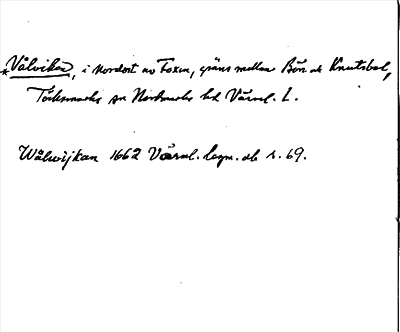 *Vålviken, i nordost av Foxen, gräns mellan Bön och Knutsbol,
Töcksmarks sn Nordmarks hd Värml. L.
Wålwijkan 1662 Värml. lagn. db s. 69.